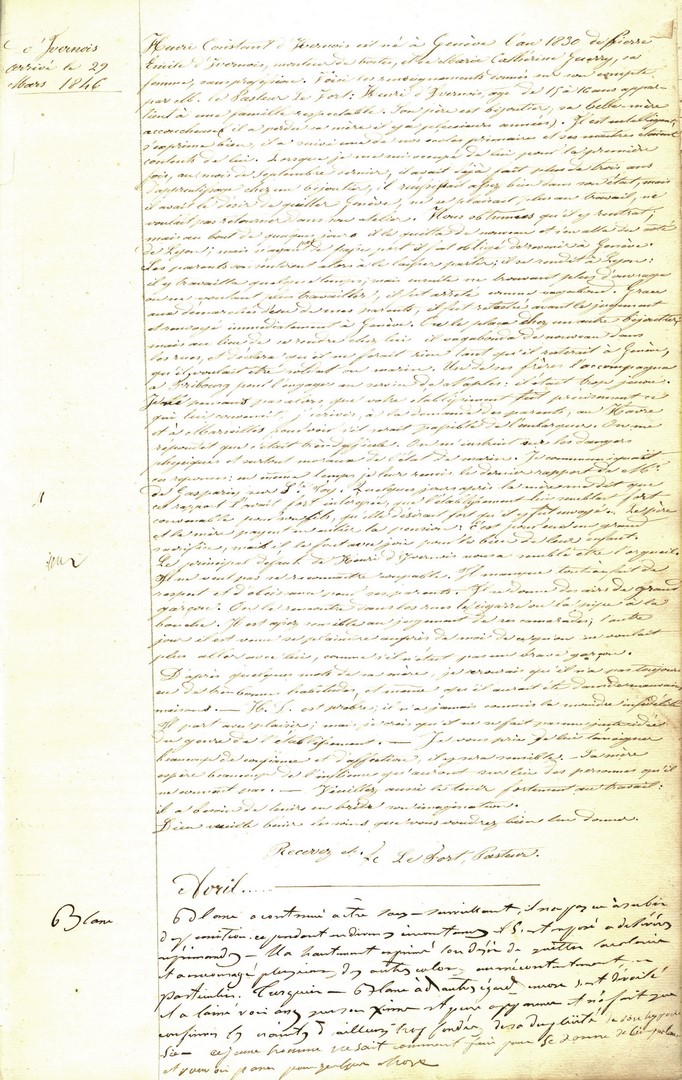 d'Ivernois
arrivé le 29
Mars 1846
Henri Constant d'Ivernois est né à Genève l'an 1830 de Pierre
Emile d'Ivernois, monteur de boites, et de Marie Catherine Guerry, sa
femme, sans profession. Voici les renseignements donnés sur son compte
par M. le Pasteur Le Fort: Henri d'Ivernois, âgé de 15 à 16 ans appar-
tient à une famille respectable. Son père est bijoutier, sa belle-mère
accoucheuse (il a perdu sa mère il y a plusieurs années). Il est intelligent,
s'exprime bien, il a suivi une de nos écoles primaire et ses maîtres étaient
contents de lui. Lorsque je me suis occupé de lui pour la première
fois, au mois de septembre dernier, il avait déjà fait plus de trois ans
d'apprentissage chez un bijoutier, il réussissait assez bien dans son état, mais
il avait le désir de quitter Genève, ne se plaisait plus au travail, ne
voulait pas retourner dans son atelier. Nous obtinmes qu'il y rentrat,
mais au bout de quelques jours il le quitta de nouveau et s'en alla du coté
de Lyon; mais n'ayant de passe-port il fut obligé de revenir à Genève.
Ses parents consentirent alors à le laisser partir; il se rendit à Lyon:
il y travailla quelque temps; mais ensuite ne trouvant plus d'ouvrage
ou ne voulant plus travailler, il fut arrêté comme vagabond. Grace
aux démarches de mes parents, il fut relaché avant le jugement
et renvoyé immédiatement à Genève. On le plaça chez un autre bijoutier;
mais au lieu de se rendre chez lui il vagabonda de nouveau dans
les rues, et déclara qu'il ne ferait rien tant qu'il resterait à Genève,
qu'il voulait être soldat ou marin. Un de ses frères l'accompagna
à Fribourg pour l'engager au service de Naples: il était trop jeune.
Je ne pensais pas alors que votre établissement fut précisement ce
qui lui convenait, j'écrivis, à la demande des parents, au Havre
et à Marseilles pour voir s'il serait possible de l'embarquer. On me
répondit que c'était très difficile. On m'instruisit sur les dangers
physiques et surtout moraux de l'état de marin. Je communiquai
ces réponses: en même temps je leur remis le dernier rapport de Mr.
de Gasparin sur Ste. Foy. Quelques jours après la mère me dit que
ce rapport l'avait fort intéressée, que l'établissement lui semblait fort
convenable pour son fils, qu'elle désirait fort qu'il y fut envoyé. Le père
et la mère payent en entier la pension: c'est pour eux un grand
sacrifice, mais il le font avec joie pour le bien de leur enfant.
Le principal défaut de Henri d'Ivernois nous a semblé être l'orgueil.
Il ne veut pas se reconnaître coupable. Il manque tout-à-fait de
respect et d'obéissance pour ses parents. Il se donne des airs de grand
garçon. On le rencontre dans les rues le cigarre ou la pipe à la
bouche. Il est assez sensible au jugement de ses camarades; l'autre
jour il est venu se plaindre auprès de moi de ce qu'on ne voulait
plus aller avec lui, comme s'il n'était pas un brave garçon.
D'après quelques mots de sa mère, je croirais qu'il n'a pas toujours
eu de bien bonnes habitudes, et même qu'il aurait été dans de mauvaises
maisons. — H. I. est probre; il n'a jamais commis la moindre infidélité.
Il part avec plaisir; mais je crois qu'il ne se fait pas une juste idée
du genre de l'établissement. — Je vous prie de lui témoigner
beaucoup de confiance et d'affection, il y sera sensible. — Sa mère
espère beaucoup de l'influence qu'auront sur lui des personnes qu'il
ne connaît pas. — Veuillez aussi le tenir fortement au travail:
il a besoin de tenir en bride son imagination.
Dieu veuille bénir les soins que vous voudrez bien leur donner.
Recevez etc. Le Fort, Pasteur.
Avril
Blanc
Blanc a continué à être sous-surveillant, il n'a pas eu à subir
de punition, cependant en diverses il s'est exposé à de
réprimandes — Il a hautement exprimé son désir de quitter la colonie
et a encouragé plusieurs des autres colons au mécontentement en
particulier Turquin — Blanc a d'autres égards encore
et a laissé voir
confirmer les craintes d'ailleurs trop fondées de sa duplicité
ce jeune homme ne sait comment faire pour se donner de
et vouloir passer pour quelque chose